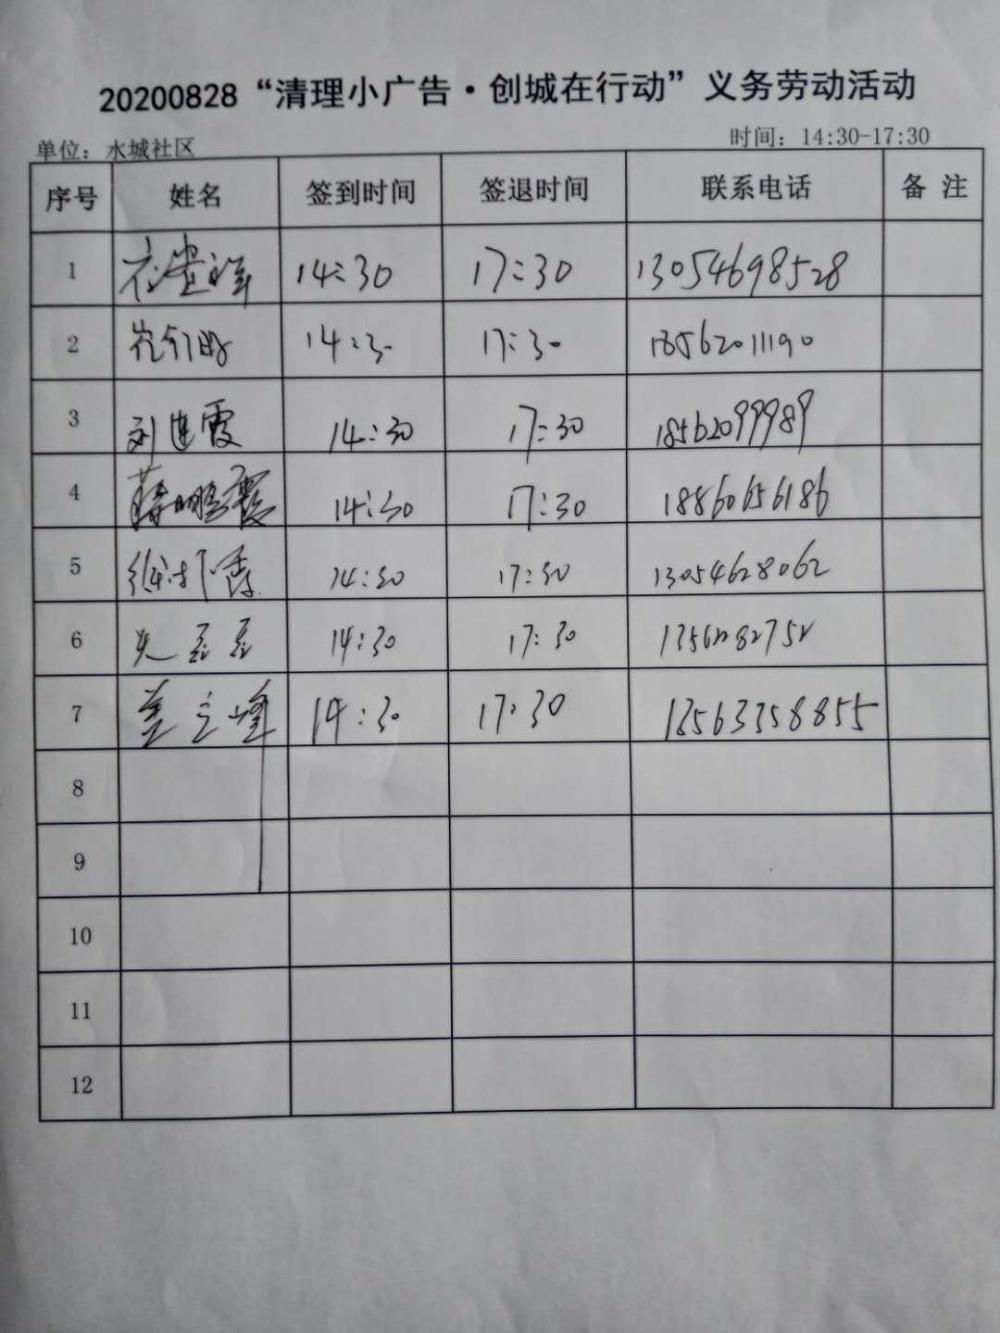 20200828“清理小广告·创城在行动”义务劳动活动
单位：水城社区 时间：14:30-17:30
序号 姓名 签到时间 签退时间 联系电话 备 注
1 14:30 17:30 13054698528
2 14:30 17:30 18562011190
3 刘建霞 14:30 17:30 18562099989
4 14:30 17:30 18860656186
5 14:30 17:30 13054628062
6 14:30 17:30
7 14:30 17:30 13563358855
8
9
10
11
12